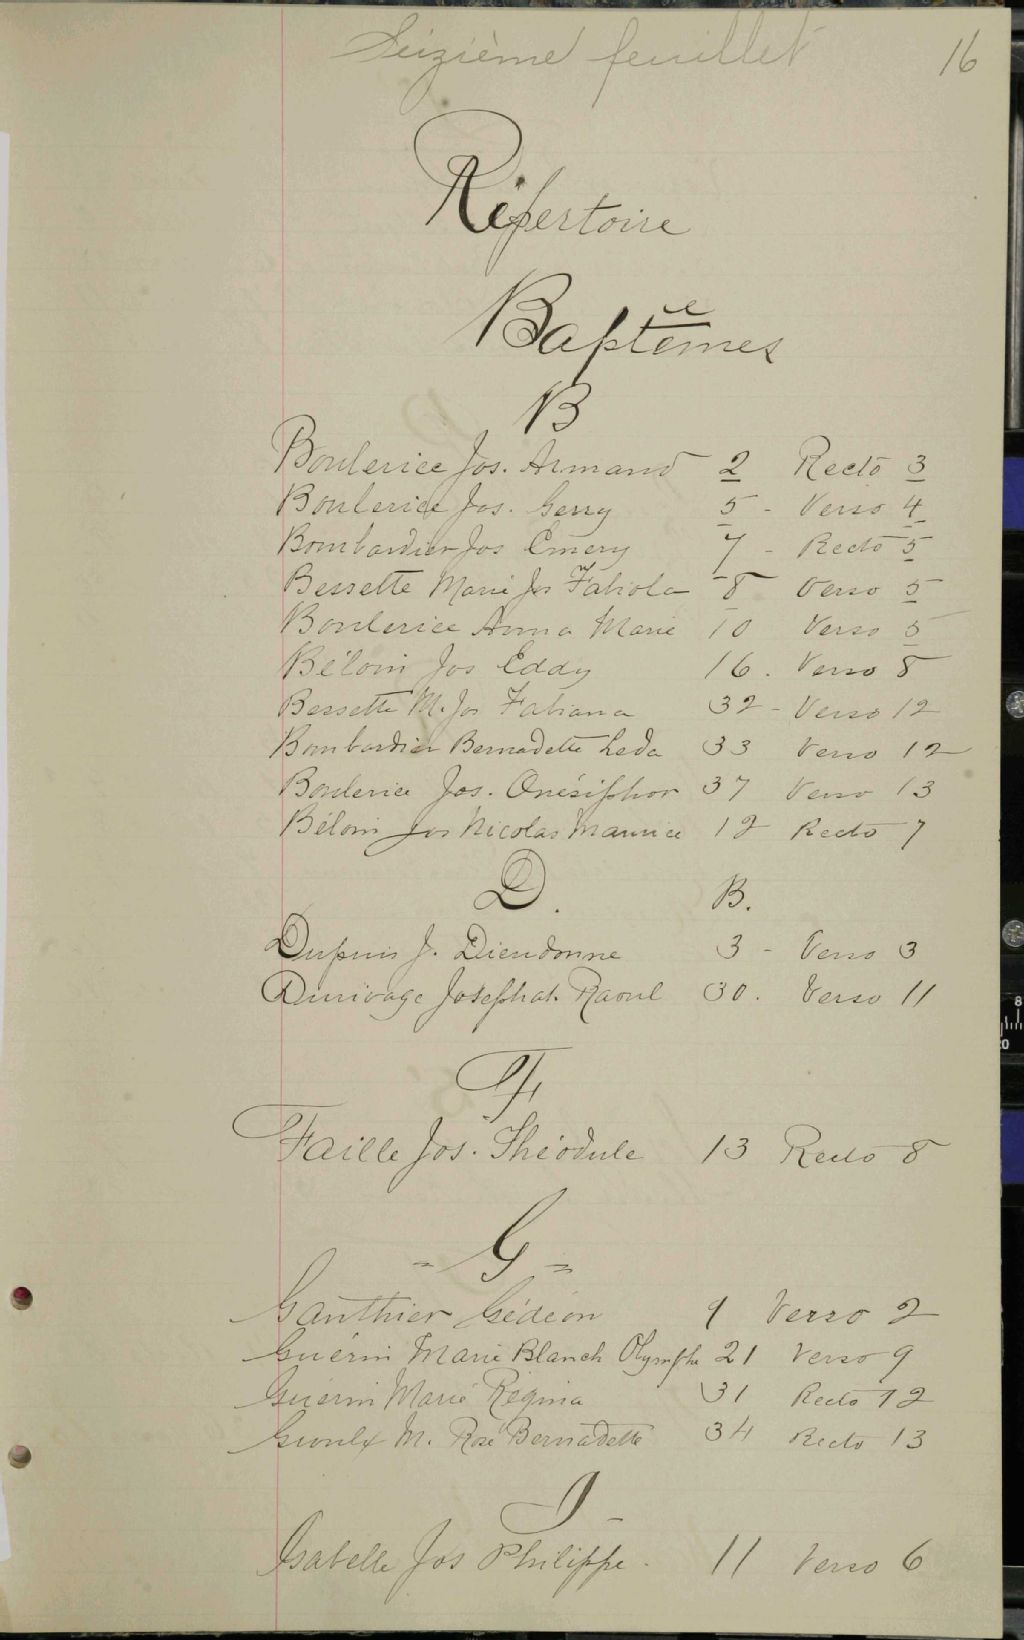 Seizième feuillet 16
Répertoire
Baptêmes
B
Boulerice Jos. Armand 2 Recto 3
Boulerice Jos. Gerry 5 - Verso 4
Bombardier Jos Emery 7 - Recto 5
Bessette Marie Jos Fabiola 8 Verso 5
Boulerice Anna Marie 10 Verso 5
Béloin Jos Eddy 16. Verso 8
Bessette M. Jos Fabiana 32 - Verso 12
Bombardier Bernadette Leda 33 Verso 12
Boulerice Jos. Onésiphor 37 Verso 13
Béloin Jos Nicolas Maurice 12 Recto 7
D. B.
Dupuis J. Dieudonne 3 - Verso 3
Durivage Josephat Raoul 30. Verso 11
F
Faille Jos. Théodule 13 Recto 8
= G =
Gauthier Gédéon 1 Verso 2
Guérin Marie Blanch Olymphe 21 Verso 9
Guérin Marie Régina 31 Recto 12
M. Rose Bernadette 34 Recto 13
I -
Isabelle Jos Philippe. 11 Verso 6